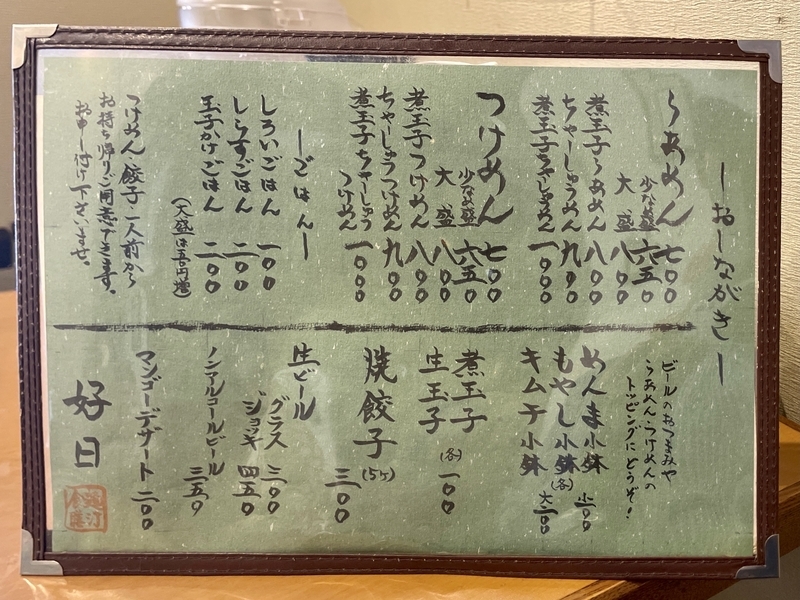 ーおーながきー
らあめん 七〇〇
少なめ盛 六五〇
大盛 八〇〇
煮玉子らあめん 八〇〇
ちゃーしゅうめん 九〇〇
煮玉子ちゃーしゅうめん 一〇〇〇
つけめん 七〇〇
少なめ盛 六五〇
大盛 八〇〇
煮玉子つけめん 八〇〇
ちゃーしゅうつけめん 九〇〇
煮玉子ちゃーしゅう
つけめん 一〇〇〇
ーごはんー
しろいごはん 一〇〇
しらすごはん 二〇〇
玉子かけごはん 二〇〇
(大盛は五〇円増)
つけめん・餃子 一人前から
お持ち帰りご用意できます。
お申し付け下さいませ。
ビールのおつまみや
らあめん・つけめんの
トッピングにどうぞ!
めんま小鉢
もやし小鉢
キムチ小鉢
(各) 小一〇〇
大二〇〇
煮玉子
生玉子
(各) 一〇〇
焼餃子(5ケ) 三〇〇
生ビール
グラス 三〇〇
ジョッキ 四五〇
ノンアルコールビール 三五〇
マンゴーデザート 二〇〇
好日